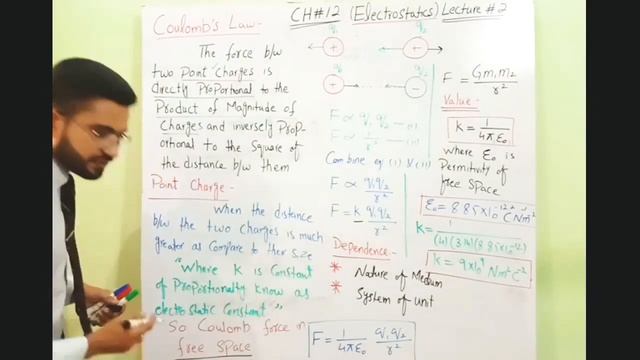 CH#12 (Electrostatics) Lecture #2
Coulomb's Law-
The force b/w
two Point Charges is
directly Proportional to the
Product of Magnitude of
Charges and inversely Prop-
ortional to the Square of
the distance b/w them
Point Charge-
When the distance
b/w the two charges is much
greater as compare to their size
"Where K is Constant
of Proportionality know as
electrostatic Constant"
So Coulomb force in
free space
q₁ q₂
+ +
q₁ q₂
+ -
F ∝ q₁ q₂ — (i)
F ∝ 1/r² — (ii)
Combine eq (i) & (ii)
F ∝ q₁q₂/r²
F = k q₁q₂/r²
Dependence:-
* Nature of Medium
* System of unit
F = 1/4πε₀ q₁q₂/r²
F = Gm₁m₂/r²
Value:-
K = 1/4πε₀
where ε₀ is
Permitivity of
free space
ε₀ = 8.85×10⁻¹² C²N⁻¹m⁻²
K = 1/(4)(3.14)(8.85×10⁻¹²)
K = 9×10⁹ Nm²C⁻²